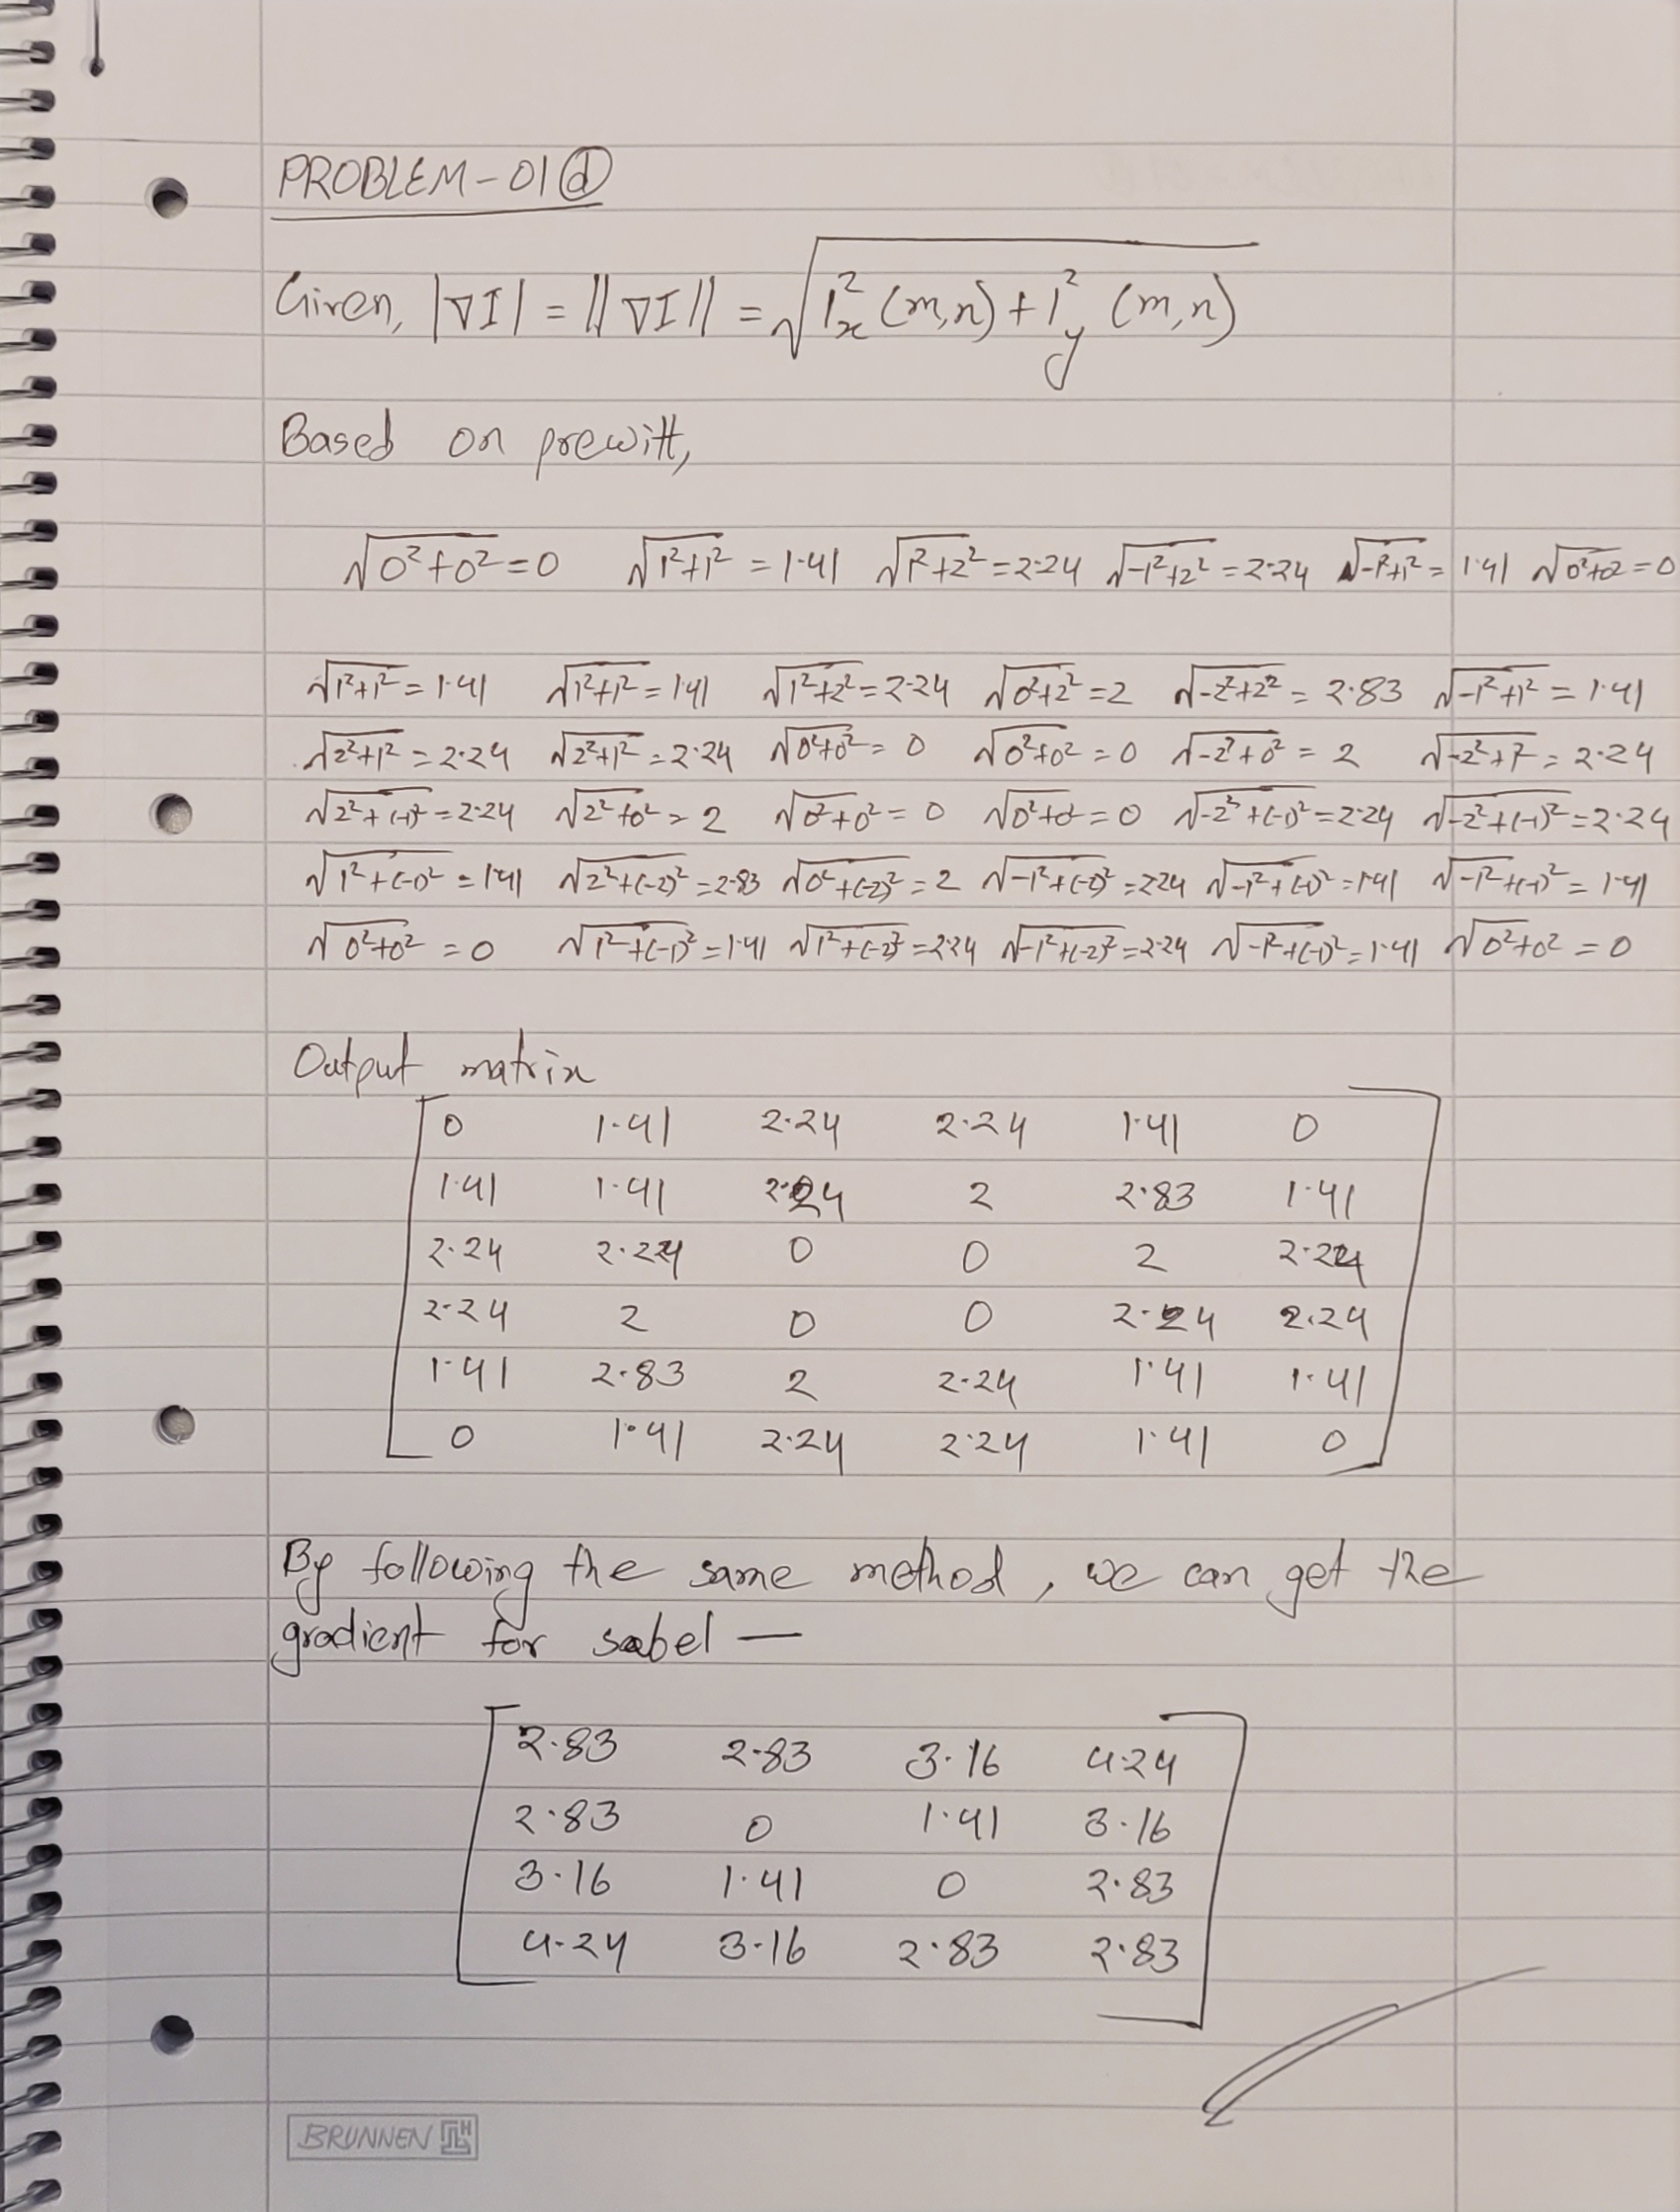 PROBLEM-01 ⓓ
Given, |∇I| = ||∇I|| = √(I²x (m,n) + I²y (m,n))
Based on prewitt,
√0²+0² = 0 √1²+1² = 1.41 √1²+2² = 2.24 √-1²+2² = 2.24 √-1²+1² = 1.41 √0²+0² = 0
√1²+1² = 1.41 √1²+1² = 1.41 √1²+2² = 2.24 √0²+2² = 2 √-2²+2² = 2.83 √-1²+1² = 1.41
√2²+1² = 2.24 √2²+1² = 2.24 √0²+0² = 0 √0²+0² = 0 √-2²+0² = 2 √-2²+1² = 2.24
√2²+(-1)² = 2.24 √2²+0² = 2 √0²+0² = 0 √0²+0² = 0 √-2²+(-1)² = 2.24 √-2²+(-1)² = 2.24
√1²+(-1)² = 1.41 √2²+(-2)² = 2.83 √0²+(-2)² = 2 √-1²+(-2)² = 2.24 √-1²+(-1)² = 1.41 √-1²+(-1)² = 1.41
√0²+0² = 0 √1²+(-1)² = 1.41 √1²+(-2)² = 2.24 √-1²+(-2)² = 2.24 √-1²+(-1)² = 1.41 √0²+0² = 0
Output matrix
0 1.41 2.24 2.24 1.41 0
1.41 1.41 2.24 2 2.83 1.41
2.24 2.24 0 0 2 2.24
2.24 2 0 0 2.24 2.24
1.41 2.83 2 2.24 1.41 1.41
0 1.41 2.24 2.24 1.41 0
By following the same method, we can get the
gradient for sobel —
2.83 2.83 3.16 4.24
2.83 0 1.41 3.16
3.16 1.41 0 2.83
4.24 3.16 2.83 2.83
BRUNNEN